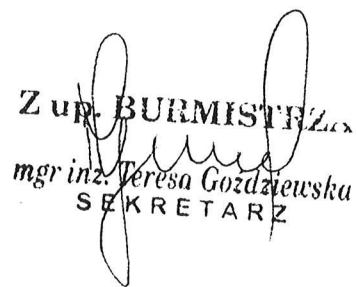 Z up. BURMISTRZA
mgr inż. Teresa Goździewska
SEKRETARZ